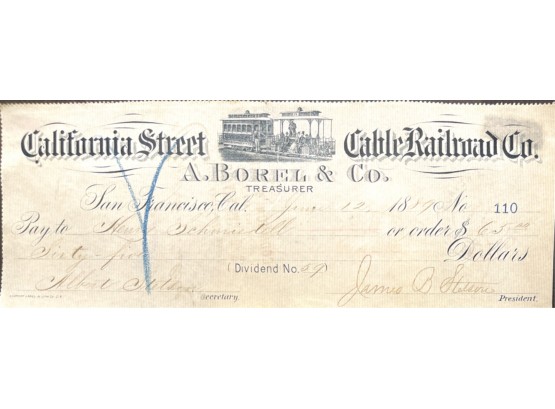 California Street Cable Railroad Co.
A. BOREL & CO.
TREASURER
San Francisco, Cal. 12 18 No 110
Pay to Schmiedell or order $ 65.00
Sixty-five Dollars
(Dividend No. 59)
Albert Secretary.
James B Stetson President.